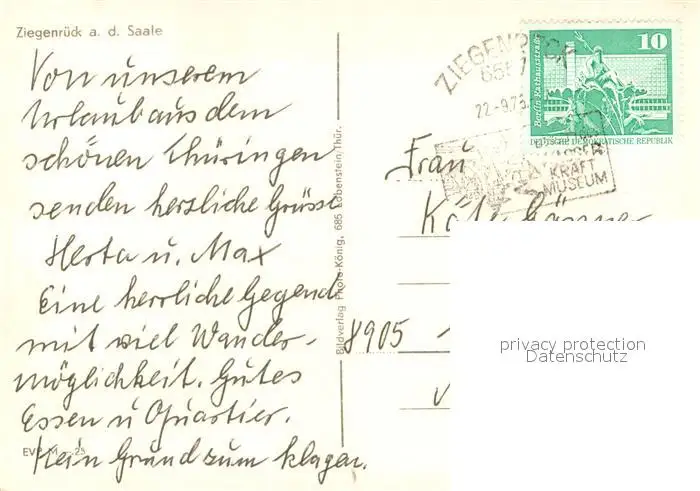 Ziegenrück a. d. Saale
Von unserem
Urlaub aus dem
schönen Thüringen
senden herzliche Grüsse
Herta u. Max
Eine herrliche Gegend
mit viel Wander-
möglichkeit. Gutes
Essen u Quartier.
Kein Grund zum klagen.
EVP M -,25
Bildverlag Photo-König, 685 Lobenstein/Thür.
ZIEGENRÜCK
22.-9.75
WASSER
KRAFT
MUSEUM
10
Berlin, Rathausstraße
DEUTSCHE DEMOKRATISCHE REPUBLIK
Frau
8905
privacy protection
Datenschutz